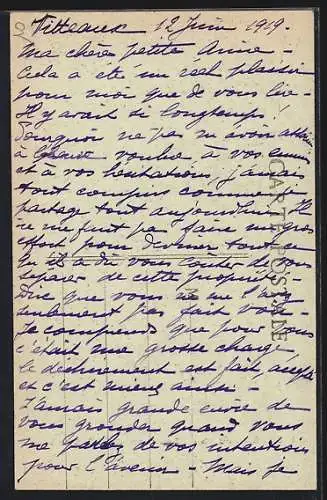 Vitteaux 12 Juin 1919.
Ma chère petite Anne -
Cela a été un réel plaisir
pour moi que de vous lire -
Il y avait si longtemps.
Pourquoi ne pas m'avoir
à vos ennuis
et à vos hésitations, j'aurais
tout compris comme je
partage tout aujourd'hui. Il
ne me faut pas faire un gros
effort pour deviner tout ce
qu'il a dû vous coûter de vous
séparer de cette propriété -
Dire que vous ne l'avez
seulement pas fait voir -
Je comprends que pour vous
c'était une grosse charge,
le déchirement est fait,
et c'est mieux ainsi -
J'aurais grande envie de
vous gronder quand vous
me parlez de vos intentions
pour l'avenir - Mais je
CARTE